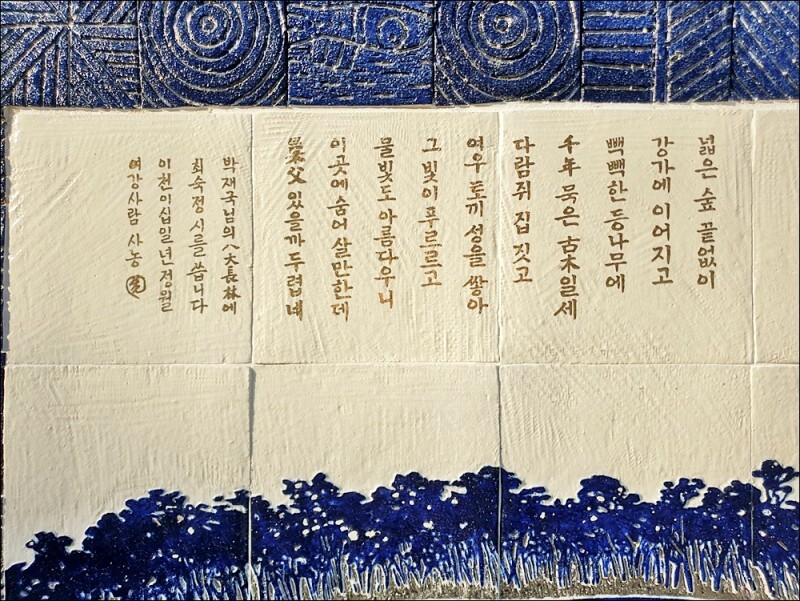 넓은 숲 끝없이
강가에 이어지고
빽빽한 등나무에
千年 묵은 古木일세
다람쥐 집 짓고
여우 토끼 성을 쌓아
그 빛이 푸르르고
물빛도 아름다우니
이곳에 숨어 살만한데
巢父 있을까 두렵네
박재국님의 八大長林에
최숙정 시를 씁니다
이천이십일년 정월
여강사람 사농